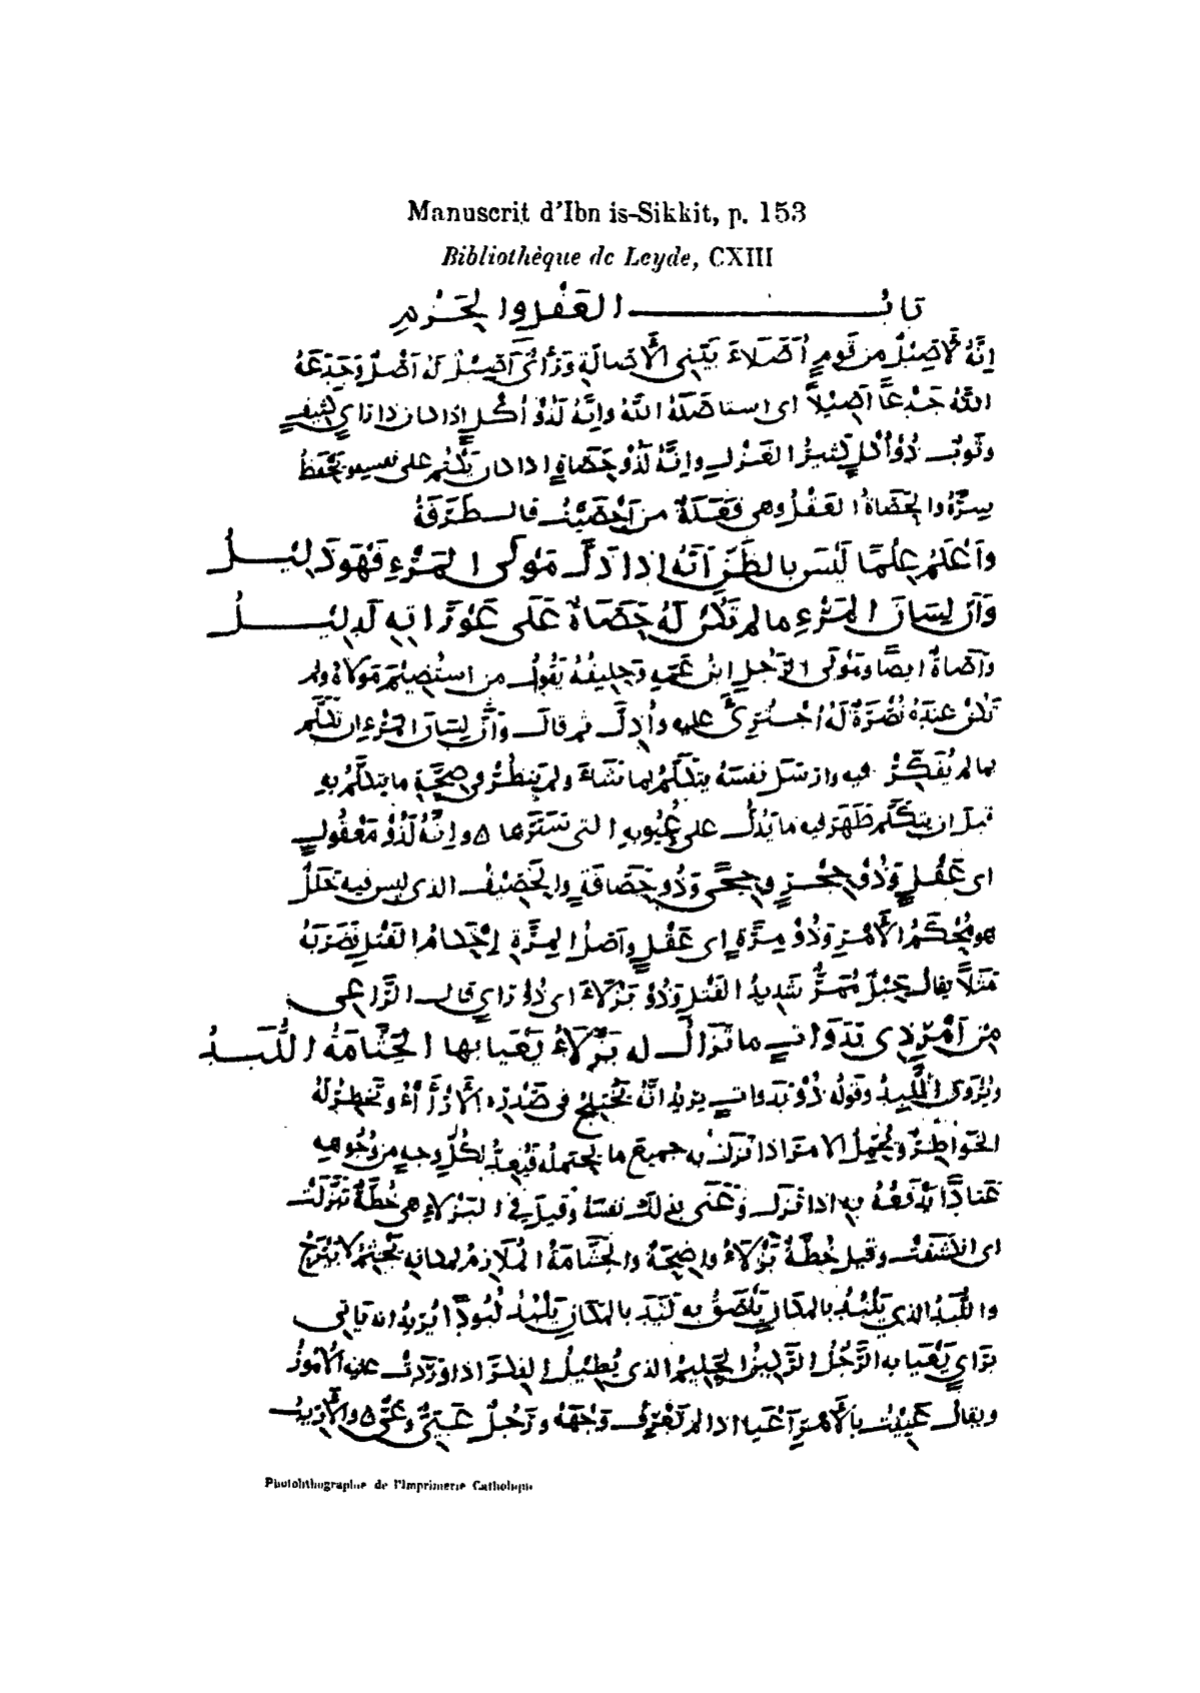 Manuscrit d'Ibn is-Sikkit, p. 153
Bibliothèque de Leyde, CXIII
باب العَقْلِ والحَزْمِ
إنَّهُ لأَصِيلٌ من قَومٍ أُصَلاءَ بَيِّنِي الأَصالَةِ ورَأْيٌ أَصِيلٌ لَهُ أَصْلٌ وَجَدَعَهُ
اللهُ جَدْعًا أَصِيلًا اى استاصَلَهُ اللهُ وإنَّهُ لَذُو أُكْلٍ إذا كان ذا رَايٍ كثيفٍ
وثَوبٌ ذُو أُكْلٍ كثيرُ الغَزْلِ وإنَّهُ لَذُو حَصاةٍ اذا كان يَكْتُم على نفسه ويَحْفَظُ
سِرَّهُ والحَصاةُ العَقْلُ وهى فَعَلَةٌ من أَحْصَيْتُ قال طَرَفَةُ
وأَعْلَمُ عِلْمًا لَيْسَ بالظَّنِّ أَنَّهُ إذا ذَلَّ مَوْلَى المَرْءِ فَهْوَ ذَلِيلُ
وَأَنَّ لِسَانَ المَرْءِ ما لم تَكُنْ لَهُ حَصَاةٌ عَلَى عَوْرَاتِهِ لَدَلِيلُ
وأَصَاةٌ ايضًا ومَوْلَى الرَّجُلِ ابنُ عَمِّهِ وحَلِيفُهُ يَقُولُ من اسْتُضِيمَ مَوْلاهُ ولم
تَكُنْ عِنْدَهُ نُصْرَةٌ لَهُ اجْتُرِئَ عليه وأُذِلَّ ثم قال وَأَنَّ لِسانَ المَرْءِ ان تَكَلَّم
بما لم يُفَكِّرْ فيه وارسَلَ نفسَهُ يتكلَّمُ بما شاءَ ولم يَنظُرْ فى صِحَّةِ ما يتكلَّمُ به
قبلَ ان يتكَلَّم ظَهَرَ فيه ما يَدُلُّ على عُيُوبِهِ التى سَتَرَها ٥ وإنَّهُ لَذُو مَعْقُولٍ
اى عَقْلٍ وَذُو حِجْرٍ وحِجًى وَذُو حَصَافَةٍ والحَصِيفُ الذى ليس فيه خَلَلٌ
هو مُحْكَمُ الأَمْرِ وَذُو مِرَّةٍ اى عَقْلٍ وأَصْلُ المِرَّةِ إحْكامُ الفَتْلِ فضَرَبَهُ
مَثَلًا يقال حَبْلٌ مُمَرٌّ شَدِيدُ الفَتْلِ وَذُو بَزْلاءَ اى ذُو رَايٍ قال الرَّاعِى
مِنْ أَمْرِ ذِى بَدَوَاتٍ ما تَزَالُ له بَزْلاءُ يَعْيَا بها الجَثَّامَةُ اللُّبَدُ
ويُرْوَى اللَّبِدُ وقولُه ذُو بَدَواتٍ يريدُ انَّهُ تَخْتَلِجُ فى صَدْرِه الأَرَاءُ وتَخْطِرُ لَهُ
الخَواطِرُ ويُحْمَلُ الامرُ اذا نَزَلَ به جميعَ ما يَحتمله فيُعِدُّ لِكُلِّ وجهٍ من وُجُوههِ
عَتادًا يَدْفَعُهُ به اذا نَزَلَ وعَنَى بذلك نفسَهُ وقيلَ في البَزْلاءِ هى خُطَّةٌ تَبَزَّلَتْ
اى انكَشَفَتْ وقيل خُطَّةٌ بَزْلاءُ واضِحَةٌ والجَثَّامَةُ المُلازِمُ لمكانِهِ يَجْثِمُ لا يَبْرَحُ
واللُّبَدُ الذي يَلْبُدُ بالمكانِ يَلْصَقُ به لَبَدَ بالمكانِ يَلْبُدُ لُبُودًا يُرِيدُ انه يَأتى
برَايٍ يَعْيا به الرَّجُلُ الرَّكينُ الحَلِيمُ الذى يُطِيلُ الفِكْرَ اذا وَرَدَتْ عليه الأُمورُ
ويقالُ عَيِيْتُ بالأَمْرِ أَعْيا اذا لم تَعْرِفْ وَجْهَهُ ورَجُلٌ عَيِىٌّ وعَىٌّ ٥ والأَرِيبُ
Photolithographie de l'Imprimerie Catholique